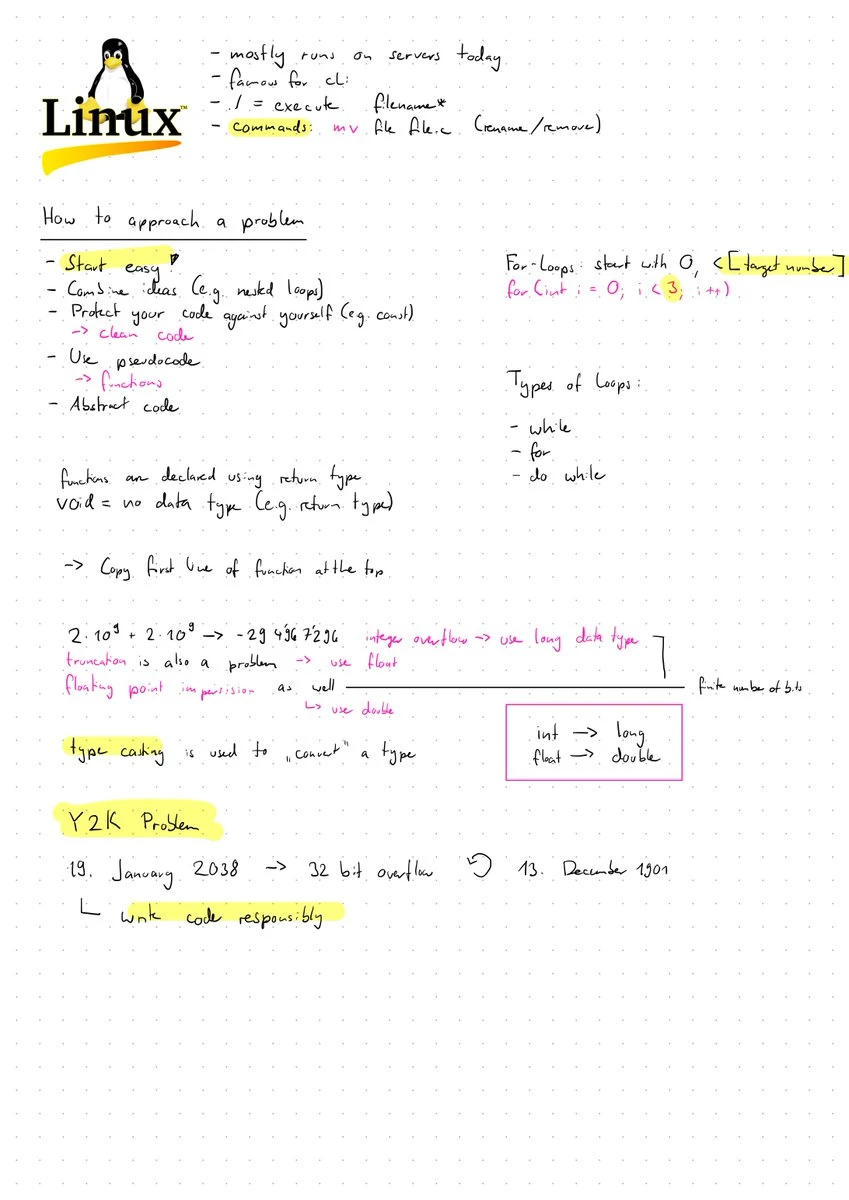 Linux™
- mostly runs on servers today
- famous for cli
- ./ = execute filename*
- commands: mv file file.c (rename/remove)
How to approach a problem
- Start easy!
- Combine ideas (e.g. nested loops)
- Protect your code against yourself (e.g. const)
-> clean code
- Use pseudocode
-> functions
- Abstract code
For-Loops: start with 0, < [target number]
for (int i = 0; i < 3; i++)
Types of Loops:
- while
- for
- do while
functions are declared using return type
void = no data type (e.g. return type)
-> Copy first line of function at the top
2·10⁹ + 2·10⁹ -> -29 4'96 7'296 integer overflow -> use long data type
truncation is also a problem -> use float
floating point impersision as well finite number of bits
↳ use double
int -> long
float -> double
type casting is used to „convert" a type
Y2K Problem
19. January 2038 -> 32 bit overflow ↺ 13. December 1901
write code responsibly